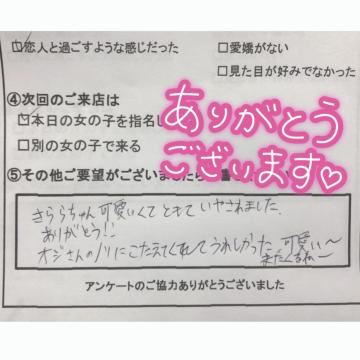 ☑恋人と過ごすような感じだった
□愛嬌がない
□見た目が好みでなかった
④次回のご来店は
☑本日の女の子を指名し
□別の女の子で来る
ありがとう
ございます♡
⑤その他ご要望がございましたら
きららちゃん可愛いくてとてもいやされました。
ありがとう!!
オジさんのノリにこたえてくれてうれしかった。可愛い〜
またくるね〜
アンケートのご協力ありがとうございました